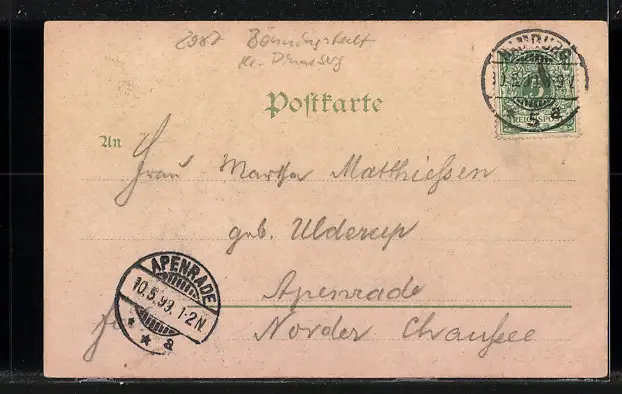 2987 Bönningstedt
Kr. Pinneberg
HAMBURG
5 a
5
REICHSPOST
Postkarte
An
Frau Martha Matthiessen
geb. Ulderup
Apenrade
Norder Chaussee
APENRADE
10.5.99. 1-2N
* * a